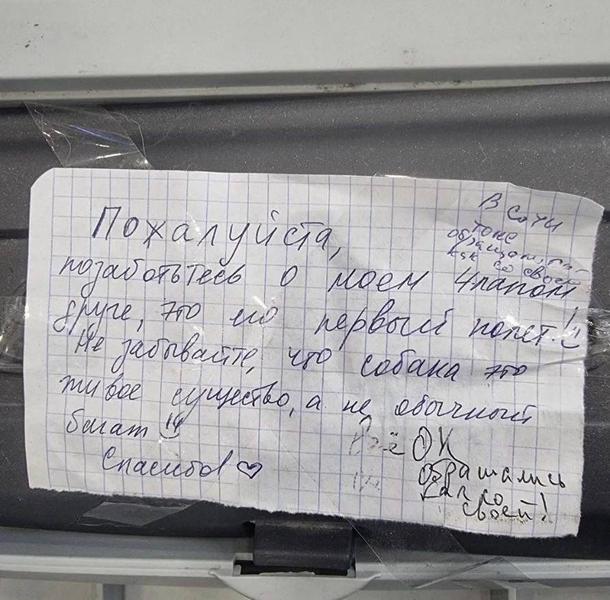 В Сочи
тоже
обращались
как со своей
Пожалуйста,
позаботьтесь о моем 4лапом
друге, это его первый полет!!
Не забывайте, что собака это
живое существо, а не обычный
багаж!!
Спасибо! ♡
Всё ОК
обращались
как со
своей!